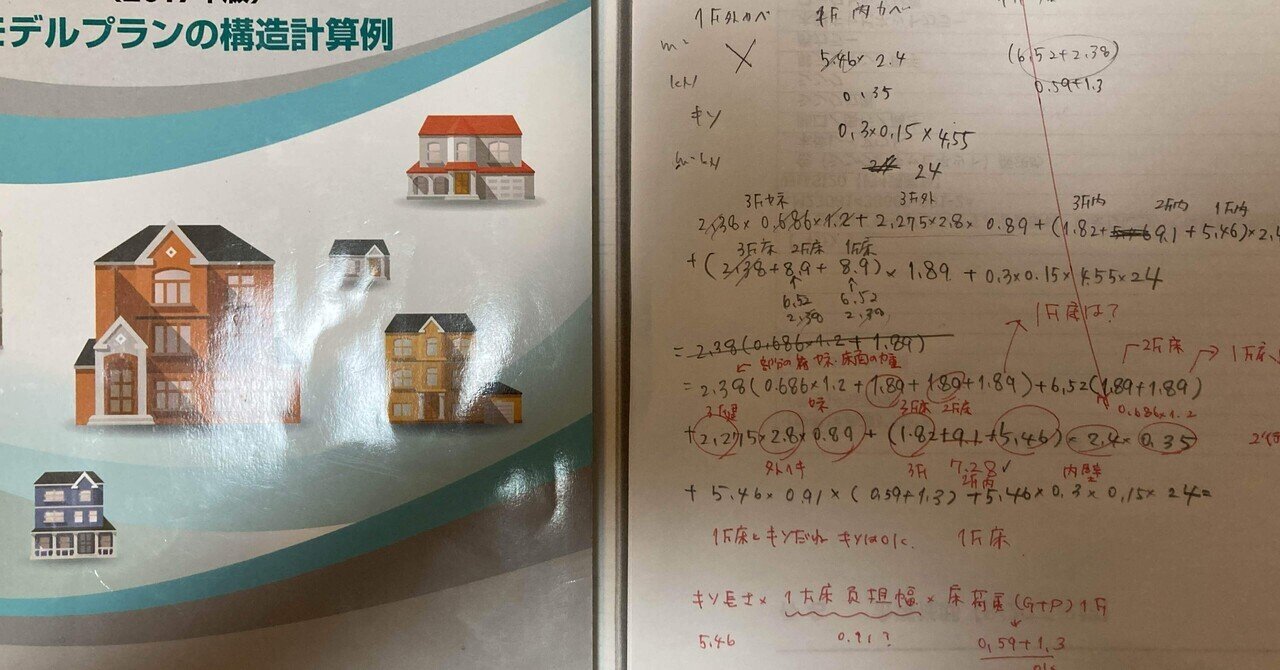 モデルプランの構造計算例
1F外カベ 1F内カベ
m² 5.46×2.4 (6.52+2.38)
kN 0.35 0.59+1.3
キソ 0.3×0.15×4.55
24
3F外 3F内 2F内 1F内
2.38×0.686×1.2+2.275×2.8×0.89+(1.82+9.1+5.46)×2.4
3F床 2F床 1F床
+(2.38+8.9+8.9)×1.89+0.3×0.15×4.55×24
6.52 6.52
2.38 2.38
1F床は?
=2.38(0.686×1.2+1.89)
2F床 1F床
=2.38(0.686×1.2+1.89+1.89+1.89)+6.52(1.89+1.89)
3F壁 3F床 2F床 0.686×1.2
+2.275×2.8×0.89+(1.82+9.1+5.46)×2.4×0.35
外ヘキ 3F 7.28 内壁
2F内
+5.46×0.91×(0.59+1.3)+5.46×0.3×0.15×24=
1F床とキソだれ キソはOK. 1F床
キソ長さ×1F床負担幅×床荷重(G+P)1F
5.46 0.91? 0.59+1.3
OK